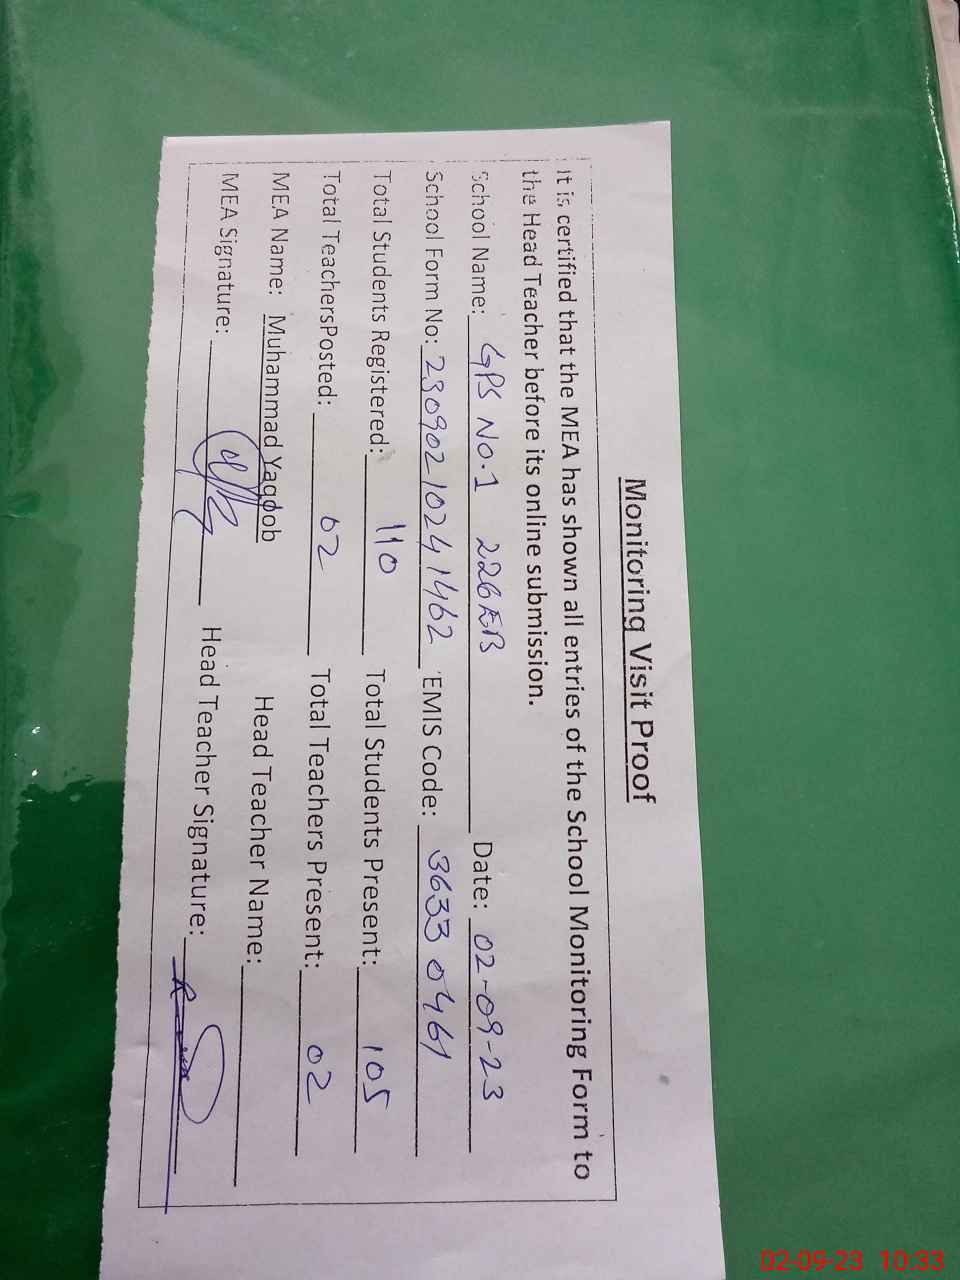 Monitoring Visit Proof
It is certified that the MEA has shown all entries of the School Monitoring Form to
the Head Teacher before its online submission.
School Name: GPS No.1 226EB Date: 02-09-23
School Form No: 23090210241462 EMIS Code: 36330461
Total Students Registered: 110 Total Students Present: 105
Total TeachersPosted: 02 Total Teachers Present: 02
MEA Name: Muhammad Yaqoob Head Teacher Name:
MEA Signature: Head Teacher Signature:
02-09-23 10:33